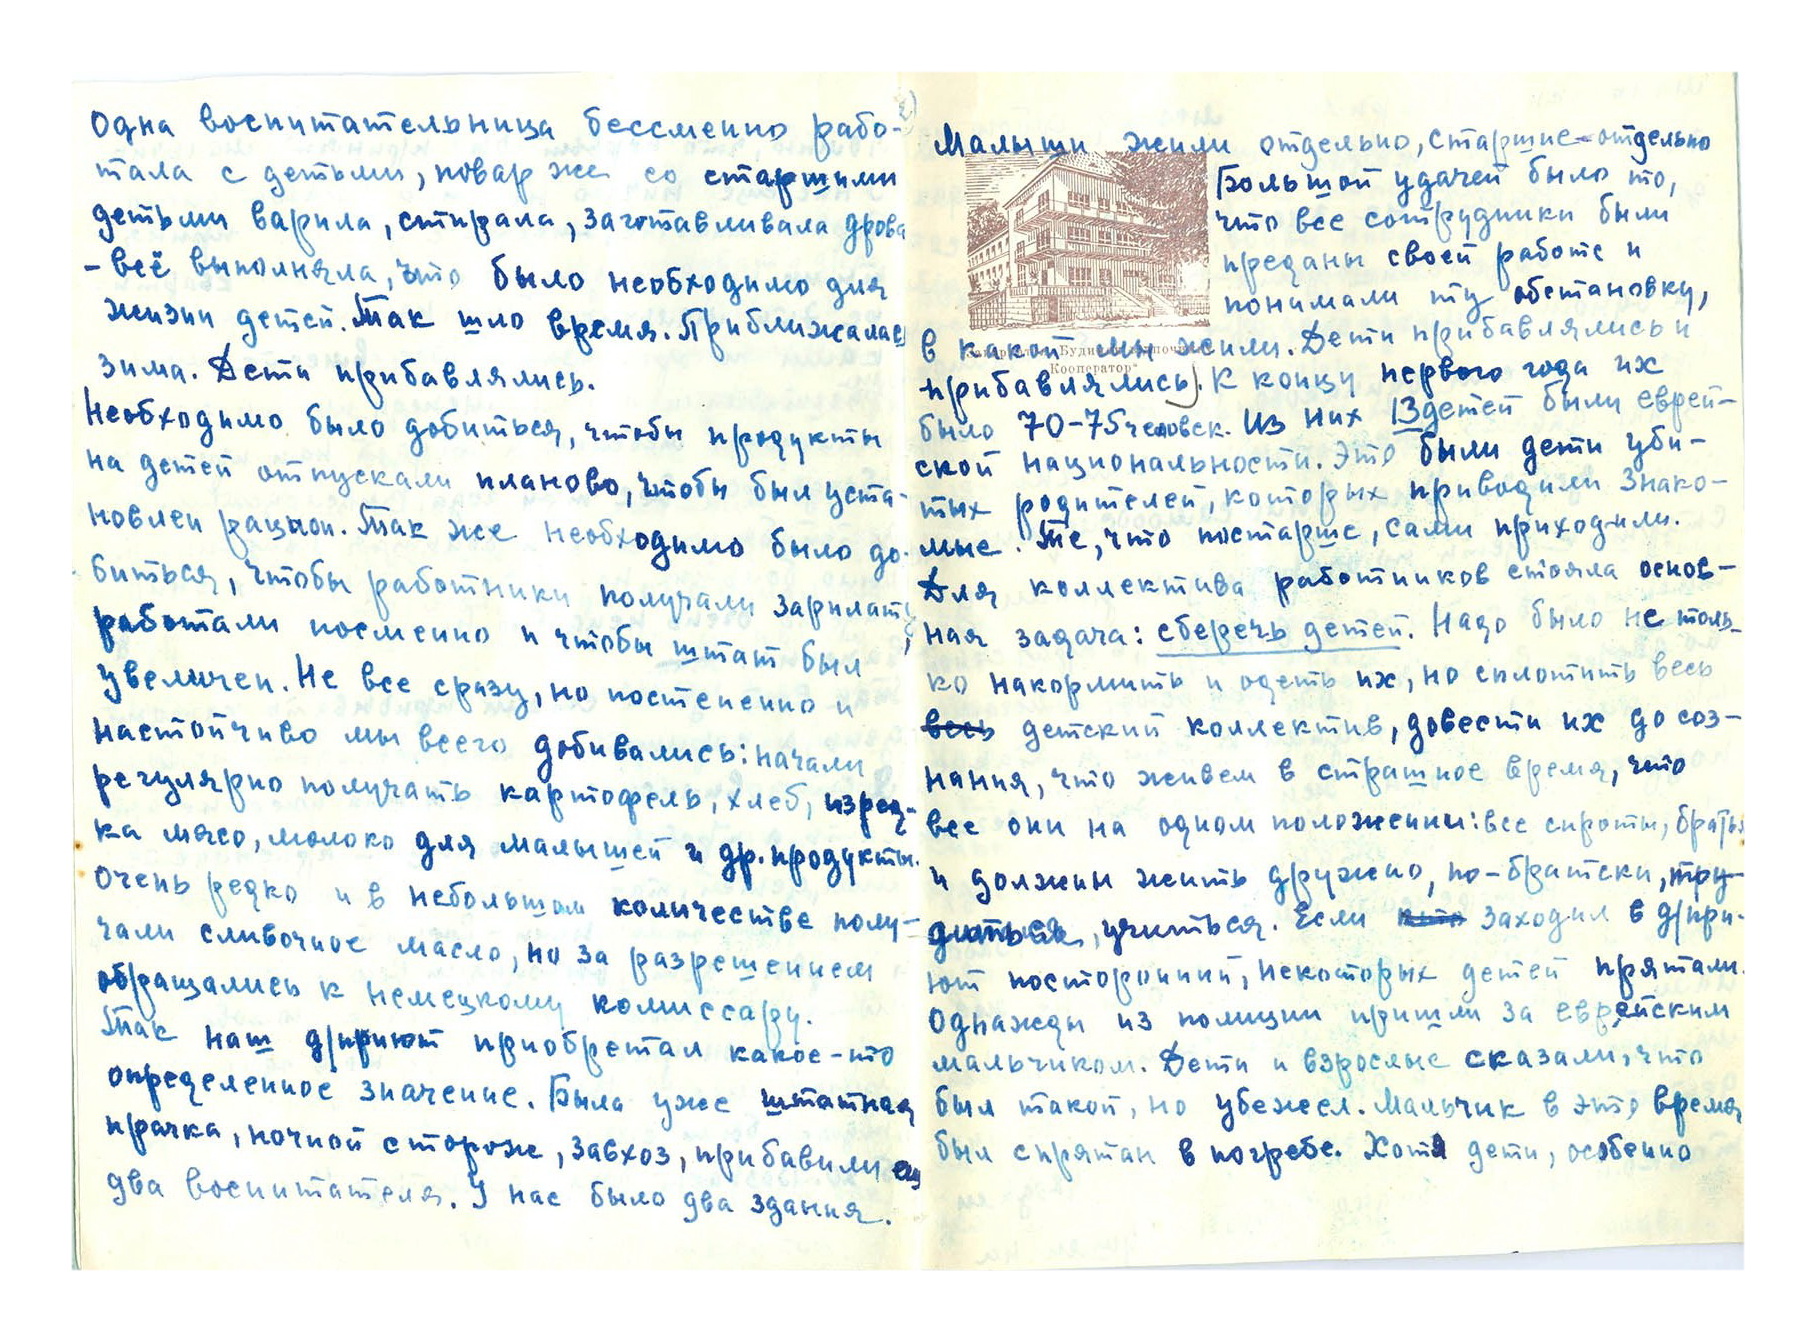 Одна воспитательница бессменно рабо-
тала с детьми, повар же со старшими
детьми варила, стирала, заготавливала дрова
- всё выполняла, что было необходимо для
жизни детей. Так шло время. Приближалась
зима. Дети прибавлялись.
Необходимо было добиться, чтобы продукты
на детей отпускали планово, чтобы был уста-
новлен рацион. Так же необходимо было до-
биться, чтобы работники получали зарплату,
работали посменно и чтобы штат был
увеличен. Не все сразу, но постепенно и
настойчиво мы всего добивались: начали
регулярно получать картофель, хлеб, изред-
ка мясо, молоко для малышей и др. продукты.
Очень редко и в небольшом количестве полу-
чали сливочное масло, но за разрешением
обращались к немецкому комиссару.
Так наш д/приют приобретал какое-то
определенное значение. Была уже штатная
прачка, ночной сторож, завхоз, прибавили ещ
два воспитателя. У нас было два здания.
Малыши жили отдельно, старшие - отдельно
Большой удачей было то,
что все сотрудники были
преданы своей работе и
понимали ту обстановку,
в какой мы жили. Дети прибавлялись и
Кооператор"
прибавлялись. К концу первого года их
было 70-75 человек. Из них 13 детей были еврей-
ской национальности. Это были дети уби-
тых родителей, которых приводили знако-
мые. Те, что постарше, сами приходили.
Для коллектива работников стояла основ-
ная задача: сберечь детей. Надо было не толь-
ко накормить и одеть их, но сплотить весь
весь детский коллектив, довести их до соз-
нания, что живем в страшное время, что
все они на одном положении: все сироты, братья
и должны жить дружно, по-братски, тру-
диться, учиться. Если кто заходил в д/при-
ют посторонний, некоторых детей прятали.
Однажды из полиции пришли за еврейским
мальчиком. Дети и взрослые сказали, что
был такой, но убежал. Мальчик в это время
был спрятан в погребе. Хотя дети, особенно